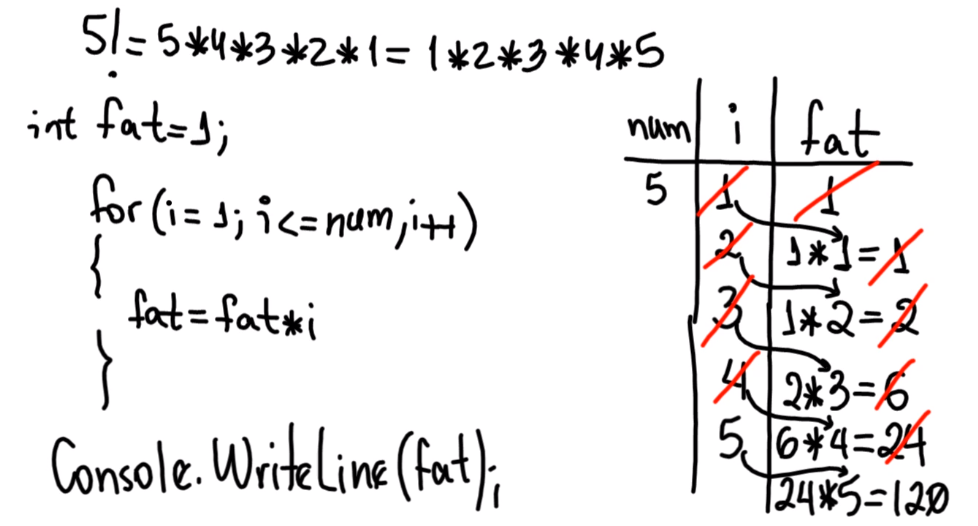 5!=5*4*3*2*1=1*2*3*4*5
int fat=1;
for(i=1;i<=num,i++)
{
fat=fat*i
}
Console.WriteLine(fat);
num i fat
5 1 1
2 1*1=1
3 1*2=2
4 2*3=6
5 6*4=24
24*5=120